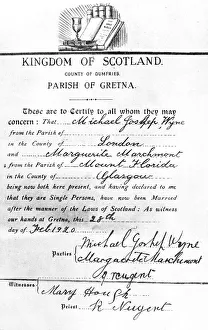 KINGDOM OF SCOTLAND.
COUNTY OF DUMFRIES.
PARISH OF GRETNA.
These are to Certify to all whom they may
concern: That Michael Joshep Wyne
from the Parish of
in the County of London
and Marguerite Marchmont
from the Parish of Mount Florida
in the County of Glasgow
being now both here present, and having declared to me
that they are Single Persons, have now been Married
after the manner of the Laws of Scotland: As witness
our hands at Gretna, this 28th
day of Feb 1920
Parties Michael Joshep Wyne
Marguerite Marchmont
Nugent
Witnesses Mary Hough
Priest R Nugent